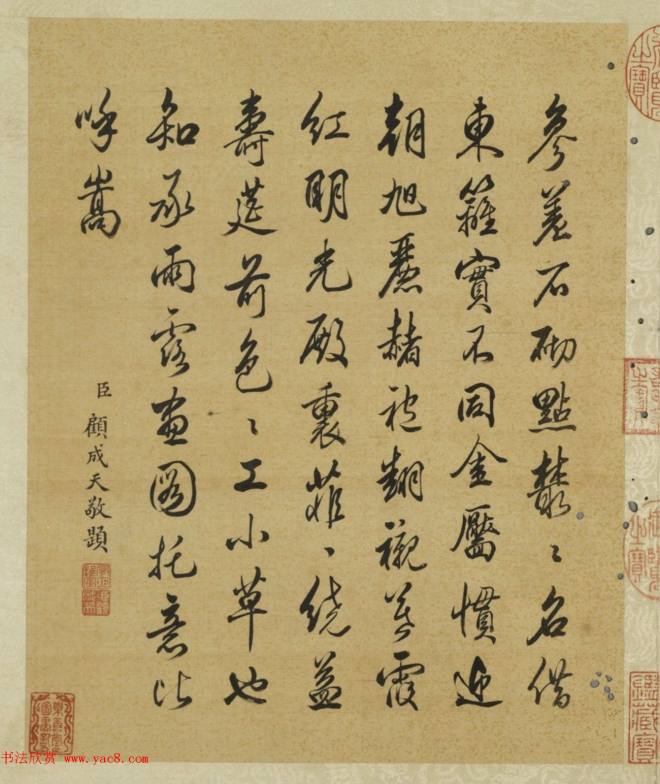 參差石砌點叢〻名借
東籬實不同金靨慣迎
朝旭麗赭袍翻襯落霞
紅明光殿裏菲〻繞益
壽筵前色〻工小草也
知承雨露畫圖托意比
呼嵩
臣顧成天敬題
書法欣赏 www.yac8.com